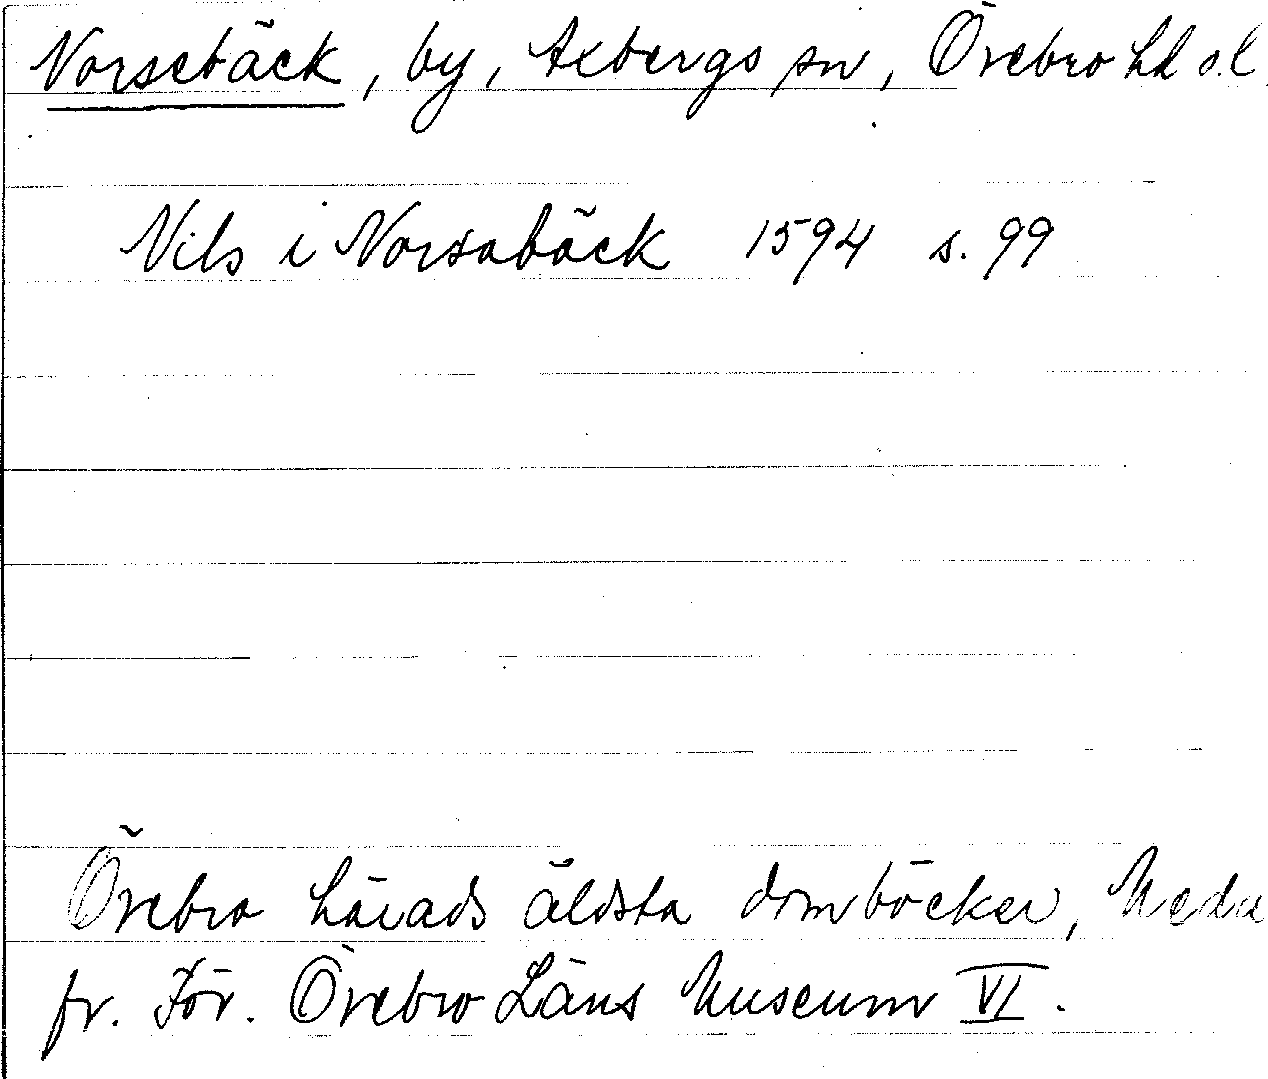 Norsebäck, by, Axbergs sn, Örebro hd o. l.
Nils i Norsabäck 1594 s. 99
Örebro härads äldsta domböcker, Medd
fr. För. Örebro Läns Museum VI.